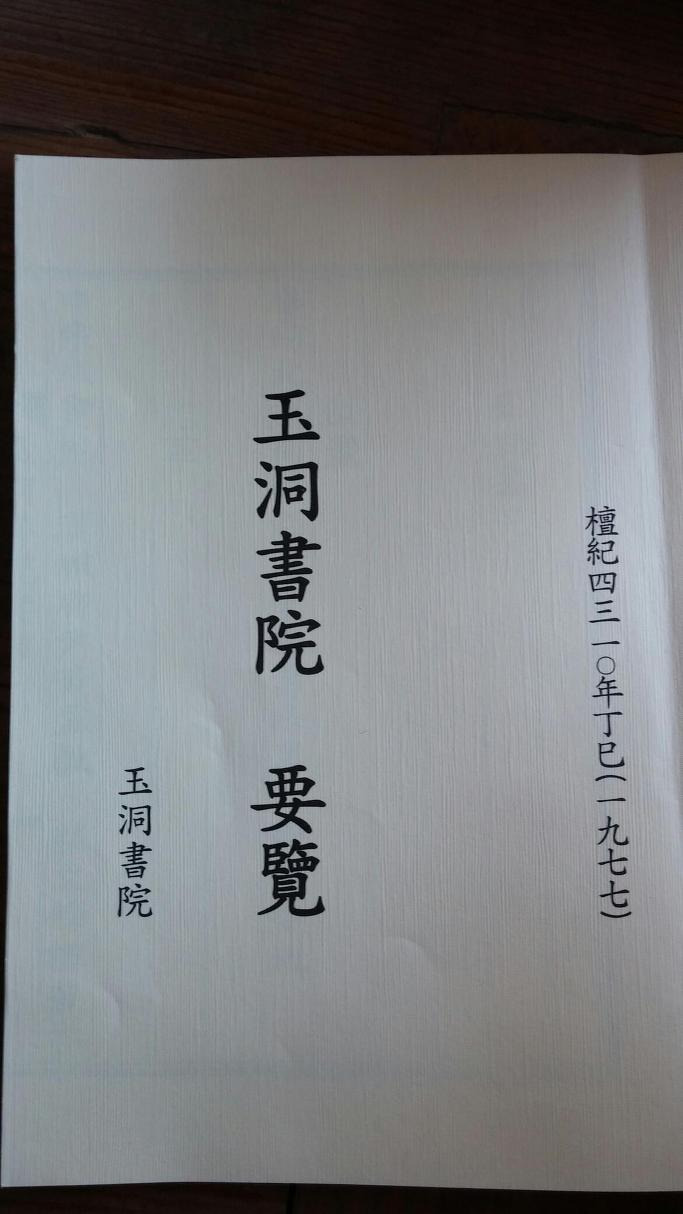 檀紀四三一〇年丁巳(一九七七)
玉洞書院 要覽
玉洞書院